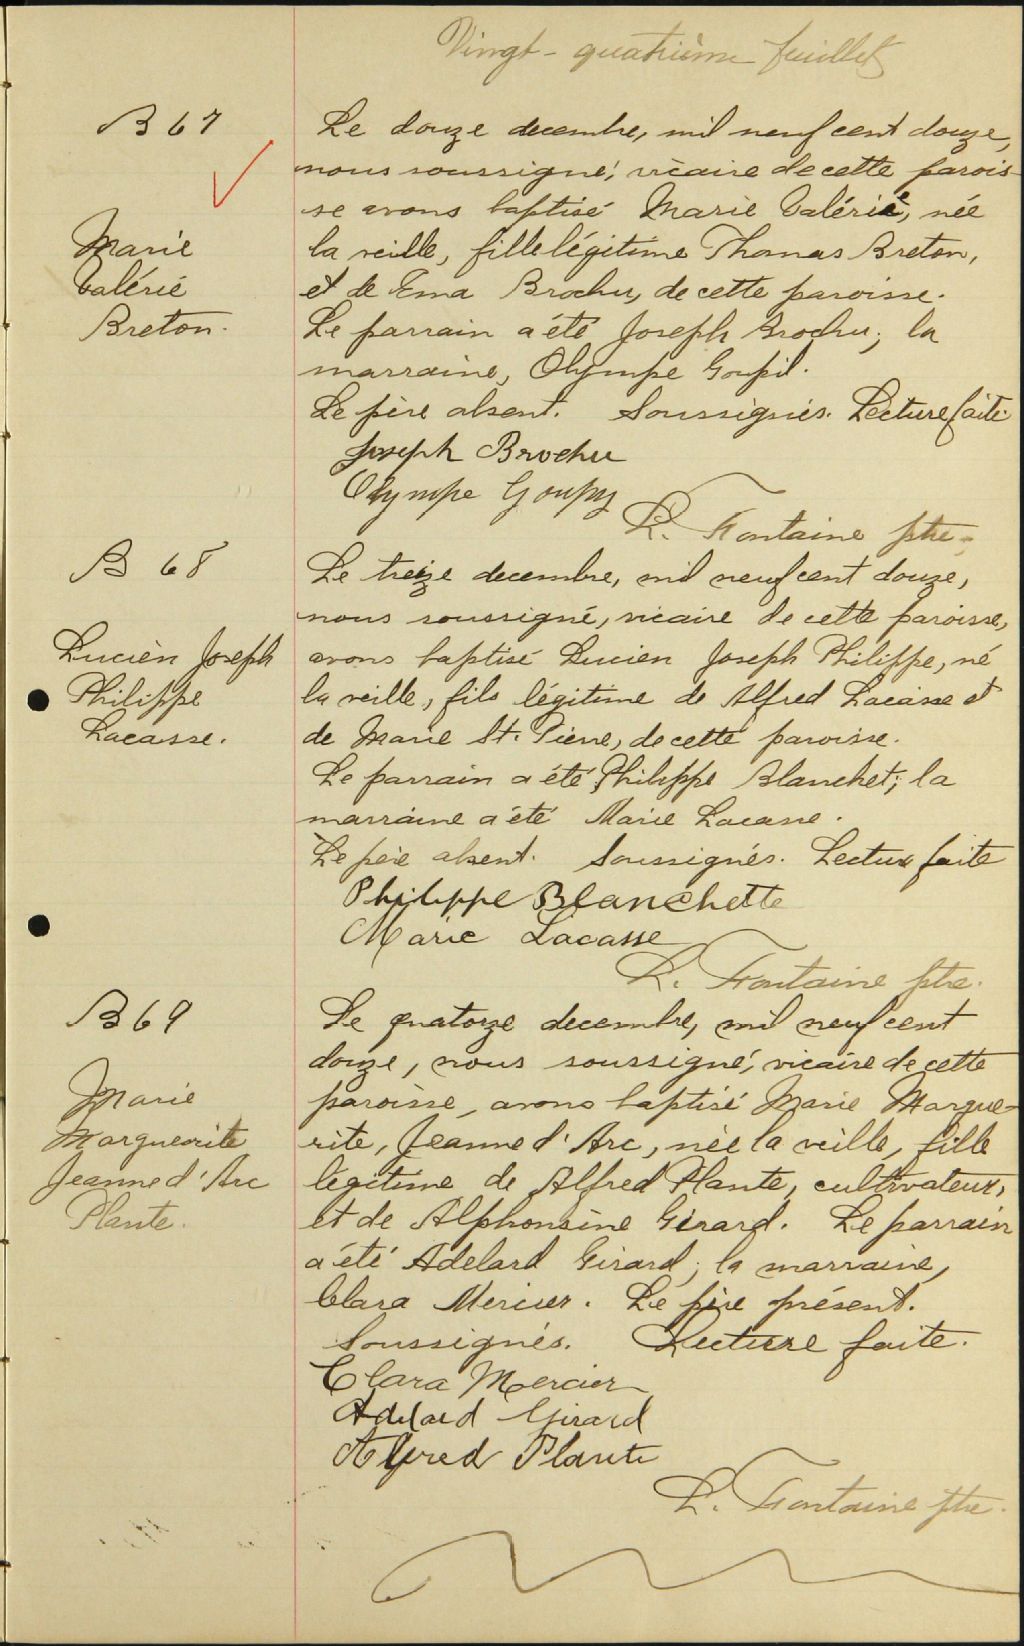 Vingt-quatrième feuillet
B 67
Le douze decembre, mil neuf cent douze,
nous soussigné, vicaire de cette parois-
se avons baptisé Marie Valérie, née
Marie
la veille, fille légitime Thomas Breton,
Valérie
et de Ema Brochu, de cette paroisse.
Breton.
Le parrain a été Joseph Brochu; la
marraine, Olympe Goupil.
Le père absent. Soussignés. Lecture faite.
Joseph Brochu
Olympe Goupy
L. Fontaine ptre.
B 68
Le treize decembre, mil neuf cent douze,
nous soussigné, vicaire de cette paroisse,
Lucien Joseph
avons baptisé Lucien Joseph Philippe, né
Philippe
la veille, fils légitime de Alfred Lacasse et
Lacasse.
de Marie St. Pierre, de cette paroisse.
Le parrain a été Philippe Blanchet; la
marraine a été Marie Lacasse.
Le père absent. Soussignés. Lecture faite
Philippe Blanchette
Marie Lacasse
L. Fontaine ptre.
B 69
Le quatorze decembre, mil neuf cent
douze, nous soussigné, vicaire de cette
Marie
paroisse, avons baptisé Marie Margue-
Marguerite
rite, Jeanne d'Arc, née la veille, fille
Jeanne d'Arc
légitime de Alfred Plante, cultivateur,
Plante.
et de Alphonsine Girard. Le parrain
a été Adelard Girard; la marraine,
Clara Mercier. Le père présent.
Soussignés. Lecture faite.
Clara Mercier
Adelard Girard
Alfred Plante
L. Fontaine ptre.